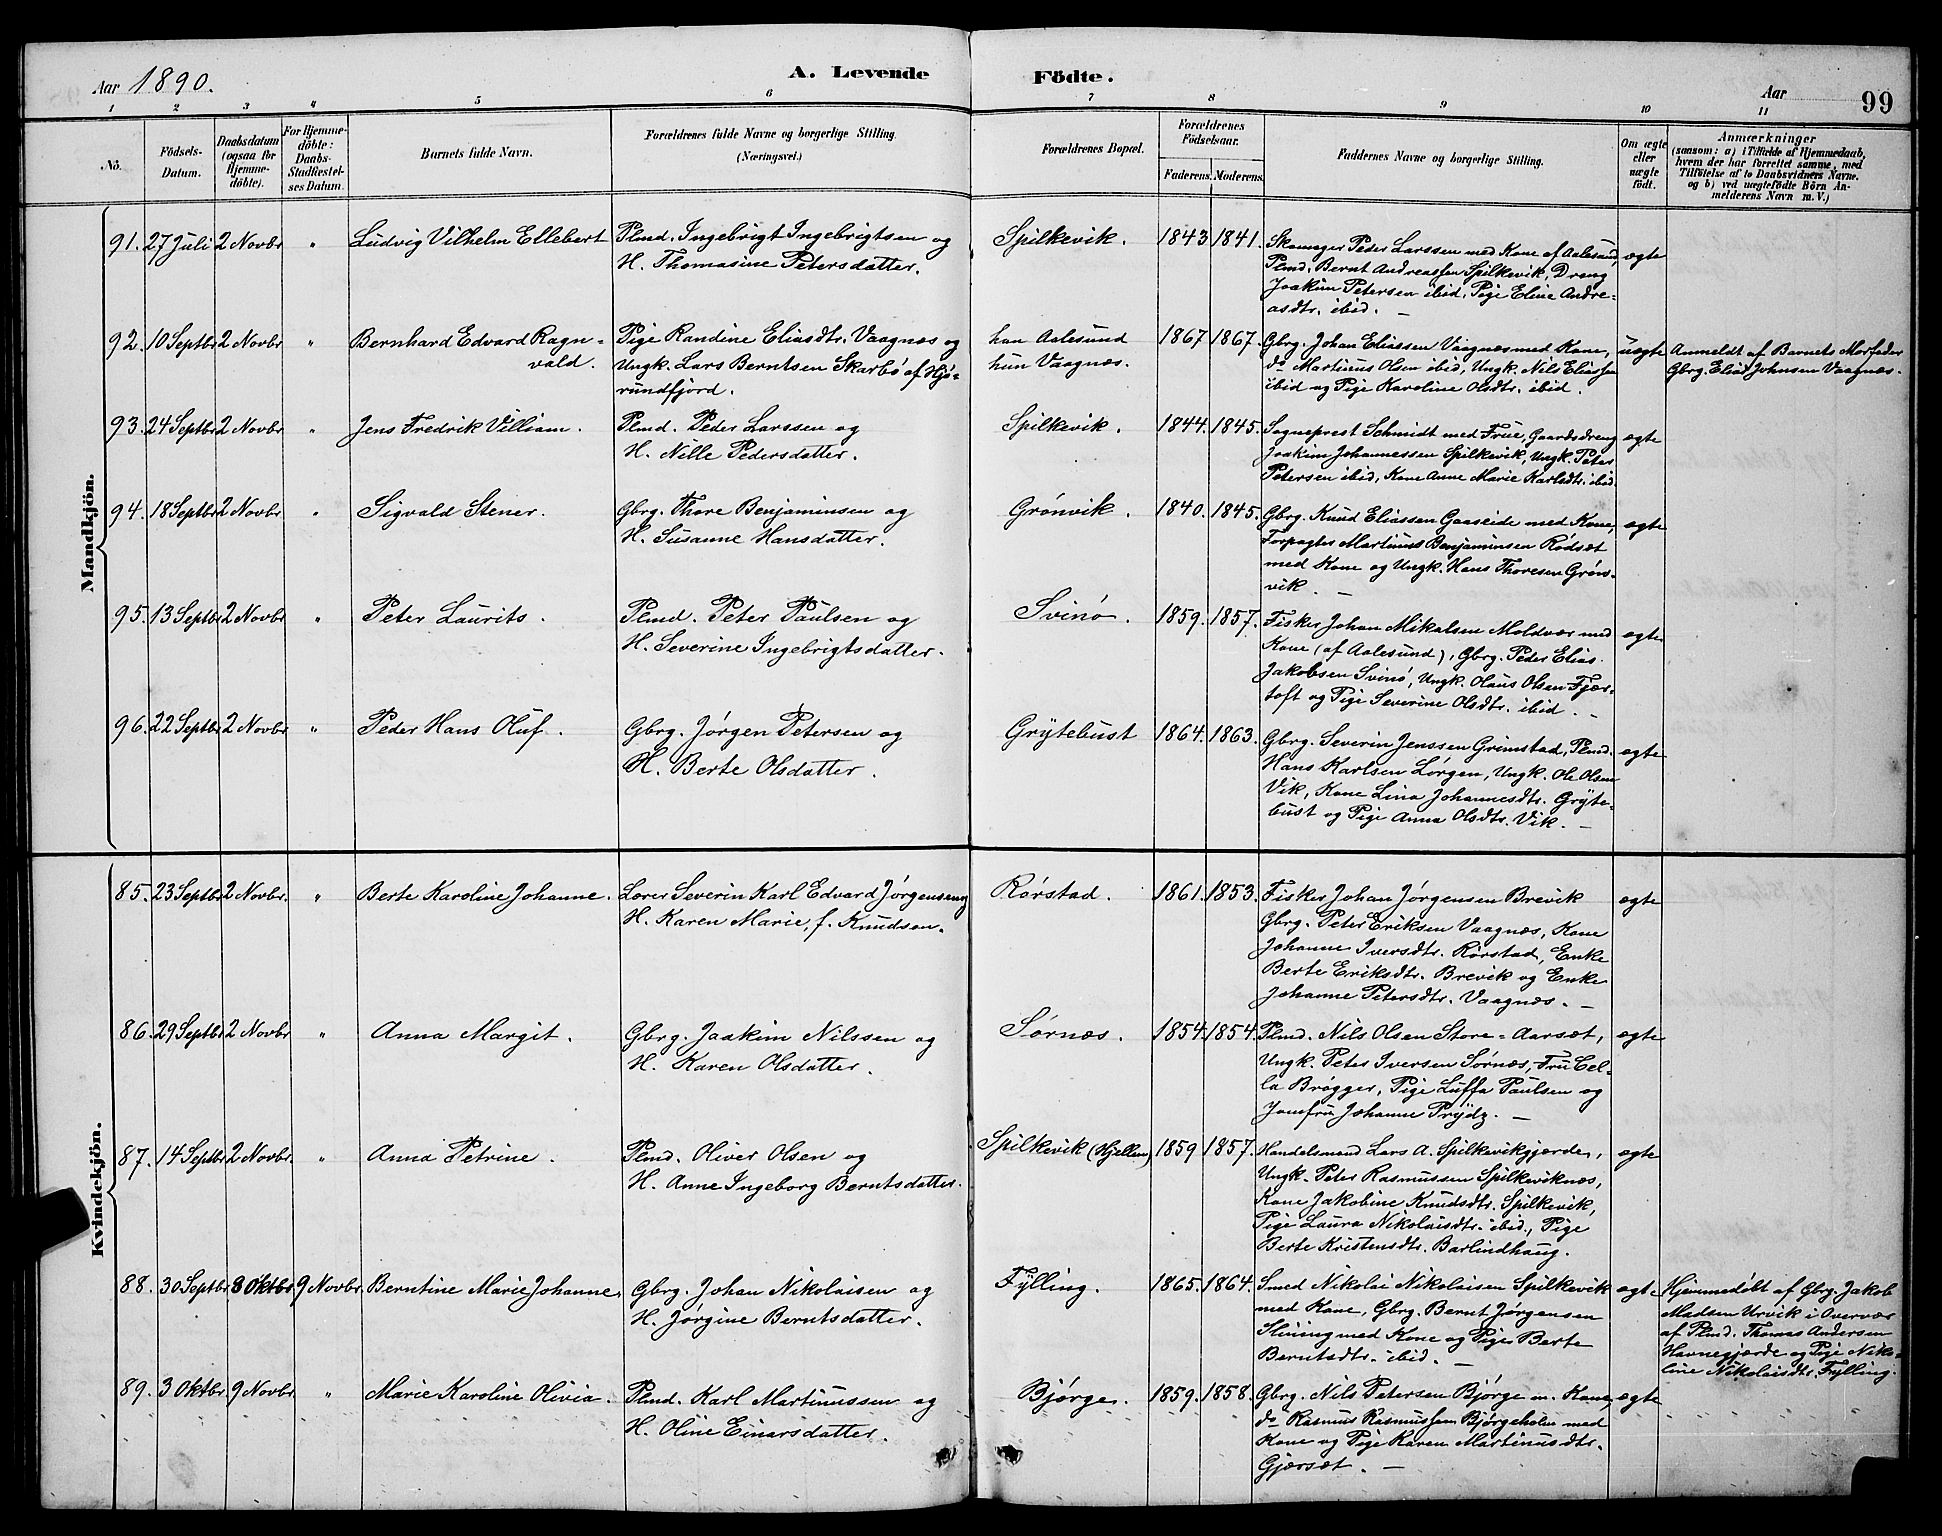 Aar 1890.
A. Levende Födte.
Aar
99
1 2 3 4 5 6 7 8 9 10 11
No.
Födsels-
Datum.
Daabsdatum
(ogsaa for
Hjemme-
döbte).
For Hjemme-
döbte:
Daabs-
Stadfæstel-
ses Datum.
Barnets fulde Navn.
Forældrenes fulde Navne og borgerlige Stilling
(Næringsvei.)
Forældrenes Bopæl.
Forældrenes
Födselsaar.
Faderens. Moderens.
Faddernes Navne og borgerlige Stilling.
Om ægte
eller
uægte
födt.
Anmærkninger
(saasom: a) i Tilfælde af Hjemmedaab,
hvem der har forrettet samme, med
Tilföielse af to Daabsvidners Navne.
og b) ved uægtefödte Börn An-
melderens Navn m.V.)
Mandkjön.
91. 27 Juli 2 Novbr " Ludvig Vilhelm Ellebert
Plmd. Ingebrigt Ingebrigtsen og
H. Thomasine Petersdatter.
Spilkevik. 1843 1841.
Skomager Peder Larssen med Kone af Aalesund,
Plmd. Bernt Andreassen Spilkevik, Dreng
Joakim Petersen ibid, Pige Eline Andre-
asdtr. ibid. –
ægte
92. 10 Septbr 2 Novbr " Bernhard Edvard Ragn-
vald.
Pige Randine Eliasdtr. Vaagnæs og
Ungk. Lars Berntsen Skarbø af Hjø-
rundfjord.
han Aalesund
hun Vaagnæs.
1867 1867.
Gbrg. Johan Eliassen Vaagnæs med Kone,
do Martinus Olsen ibid, Ungk. Nils Eliassen
ibid og Pige Karoline Olsdtr. ibid.
uægte
Anmeldt af Barnets Morfader
Gbrg. Elias Johnsen Vaagnæs.
93. 24 Septbr 2 Novbr " Jens Fredrik Villiam.
Plmd. Peder Larssen og
H. Nille Pedersdatter.
Spilkevik. 1844. 1845.
Sogneprest Schmidt med Frue, Gaardsdreng
Joakim Johannessen Spilkevik, Ungk. Peter
Petersen ibid, Kone Anne Marie Karlsdtr. ibid
ægte
94. 18 Septbr 2 Novbr " Sigvald Stener.
Gbrg. Thore Benjaminsen og
H. Susanne Hansdatter.
Grønvik. 1840. 1845.
Gbrg. Knud Eliassen Gaaseide med Kone,
Forpagter Martinus Benjaminsen Rødsæt
med Kone og Ungk. Hans Thoresen Grøn-
vik. –
ægte
95. 13 Septbr 2 Novbr " Peter Laurits.
Plmd. Peter Paulsen og
H. Severine Ingebrigtsdatter.
Svinø. 1859. 1857.
Fisker Johan Mikalsen Moldvær med
Kone (af Aalesund), Gbrg. Peder Elias
Jakobsen Svinø, Ungk. Olaus Olsen Fjør-
toft og Pige Severine Olsdtr. ibid. –
ægte
96. 22 Septbr 2 Novbr " Peder Hans Oluf.
Gbrg. Jørgen Petersen og
H. Berte Olsdatter.
Grytebust 1864. 1863.
Gbrg. Severin Jenssen Grimstad, Plmd.
Hans Karlsen Lørgen, Ungk. Ole Olsen
Vik, Kone Lina Johannesdtr. Gryte-
bust og Pige Anna Olsdtr. Vik. –
ægte
Kvindekjön.
85. 23 Septbr 2 Novbr. " Berte Karoline Johanne.
Lærer Severin Karl Edvard Jørgensen og
H. Karen Marie, f. Knudsen.
Rørstad. 1861. 1853.
Fisker Johan Jørgensen Brevik
Gbrg. Peter Eriksen Vaagnæs, Kone
Johanne Iversdtr. Rørstad, Enke
Berte Eriksdtr. Brevik og Enke
Johanne Petersdtr. Vaagnæs. –
ægte
86. 29 Septbr 2 Novbr " Anna Margit.
Gbrg. Joakim Nilssen og
H. Karen Olsdatter.
Sørnæs. 1854. 1854.
Plmd. Nils Olsen Store-Aarsæt,
Ungk. Peter Iversen Sørnæs, Fru Cel-
la Brøgger, Pige Luffa Paulsen og
Jomfru Johanne Prydz. –
ægte
87. 14 Septbr 2 Novbr. " Anna Petrine.
Plmd. Oliver Olsen og
H. Anne Ingeborg Berntsdatter.
Spilkevik (Hjellen) 1859 1857.
Handelsmand Lars A. Spilkevikgjærde,
Ungk. Peter Rasmussen Spilkeviknæs,
Kone Jakobine Knudsdtr. Spilkevik,
Pige Laura Nikolaisdtr. ibid, Pige
Berte Kristensdtr. Barlindhaug.
ægte
88. 30 Septbr 8 Oktbr 9 Novbr. Berntine Marie Johanne.
Gbrg. Johan Nikolaisen og
H. Jørgine Berntsdatter.
Fylling. 1865. 1864.
Smed Nikolai Nikolaisen Spilkevik
med Kone, Gbrg. Bernt Jørgensen
Sluning med Kone og Pige Berte
Berntsdtr. ibid. –
ægte
Hjemmedøbt af Gbrg. Jakob
Madsen Urvik i Overvær
af Plmd. Thomas Andersen
Havnegjærde og Pige Niko-
line Nikolaisdtr. Fylling.
89. 3 Oktbr. 9 Novbr. " Marie Karoline Olivia.
Plmd. Karl Martinussen og
H. Oline Einarsdatter.
Bjørge. 1859. 1858.
Gbrg. Nils Petersen Bjørge m. Kone,
do Rasmus Rasmussen Bjørgeholm med
Kone og Pige Karen Martinusdtr.
Gjærsæt. –
ægte